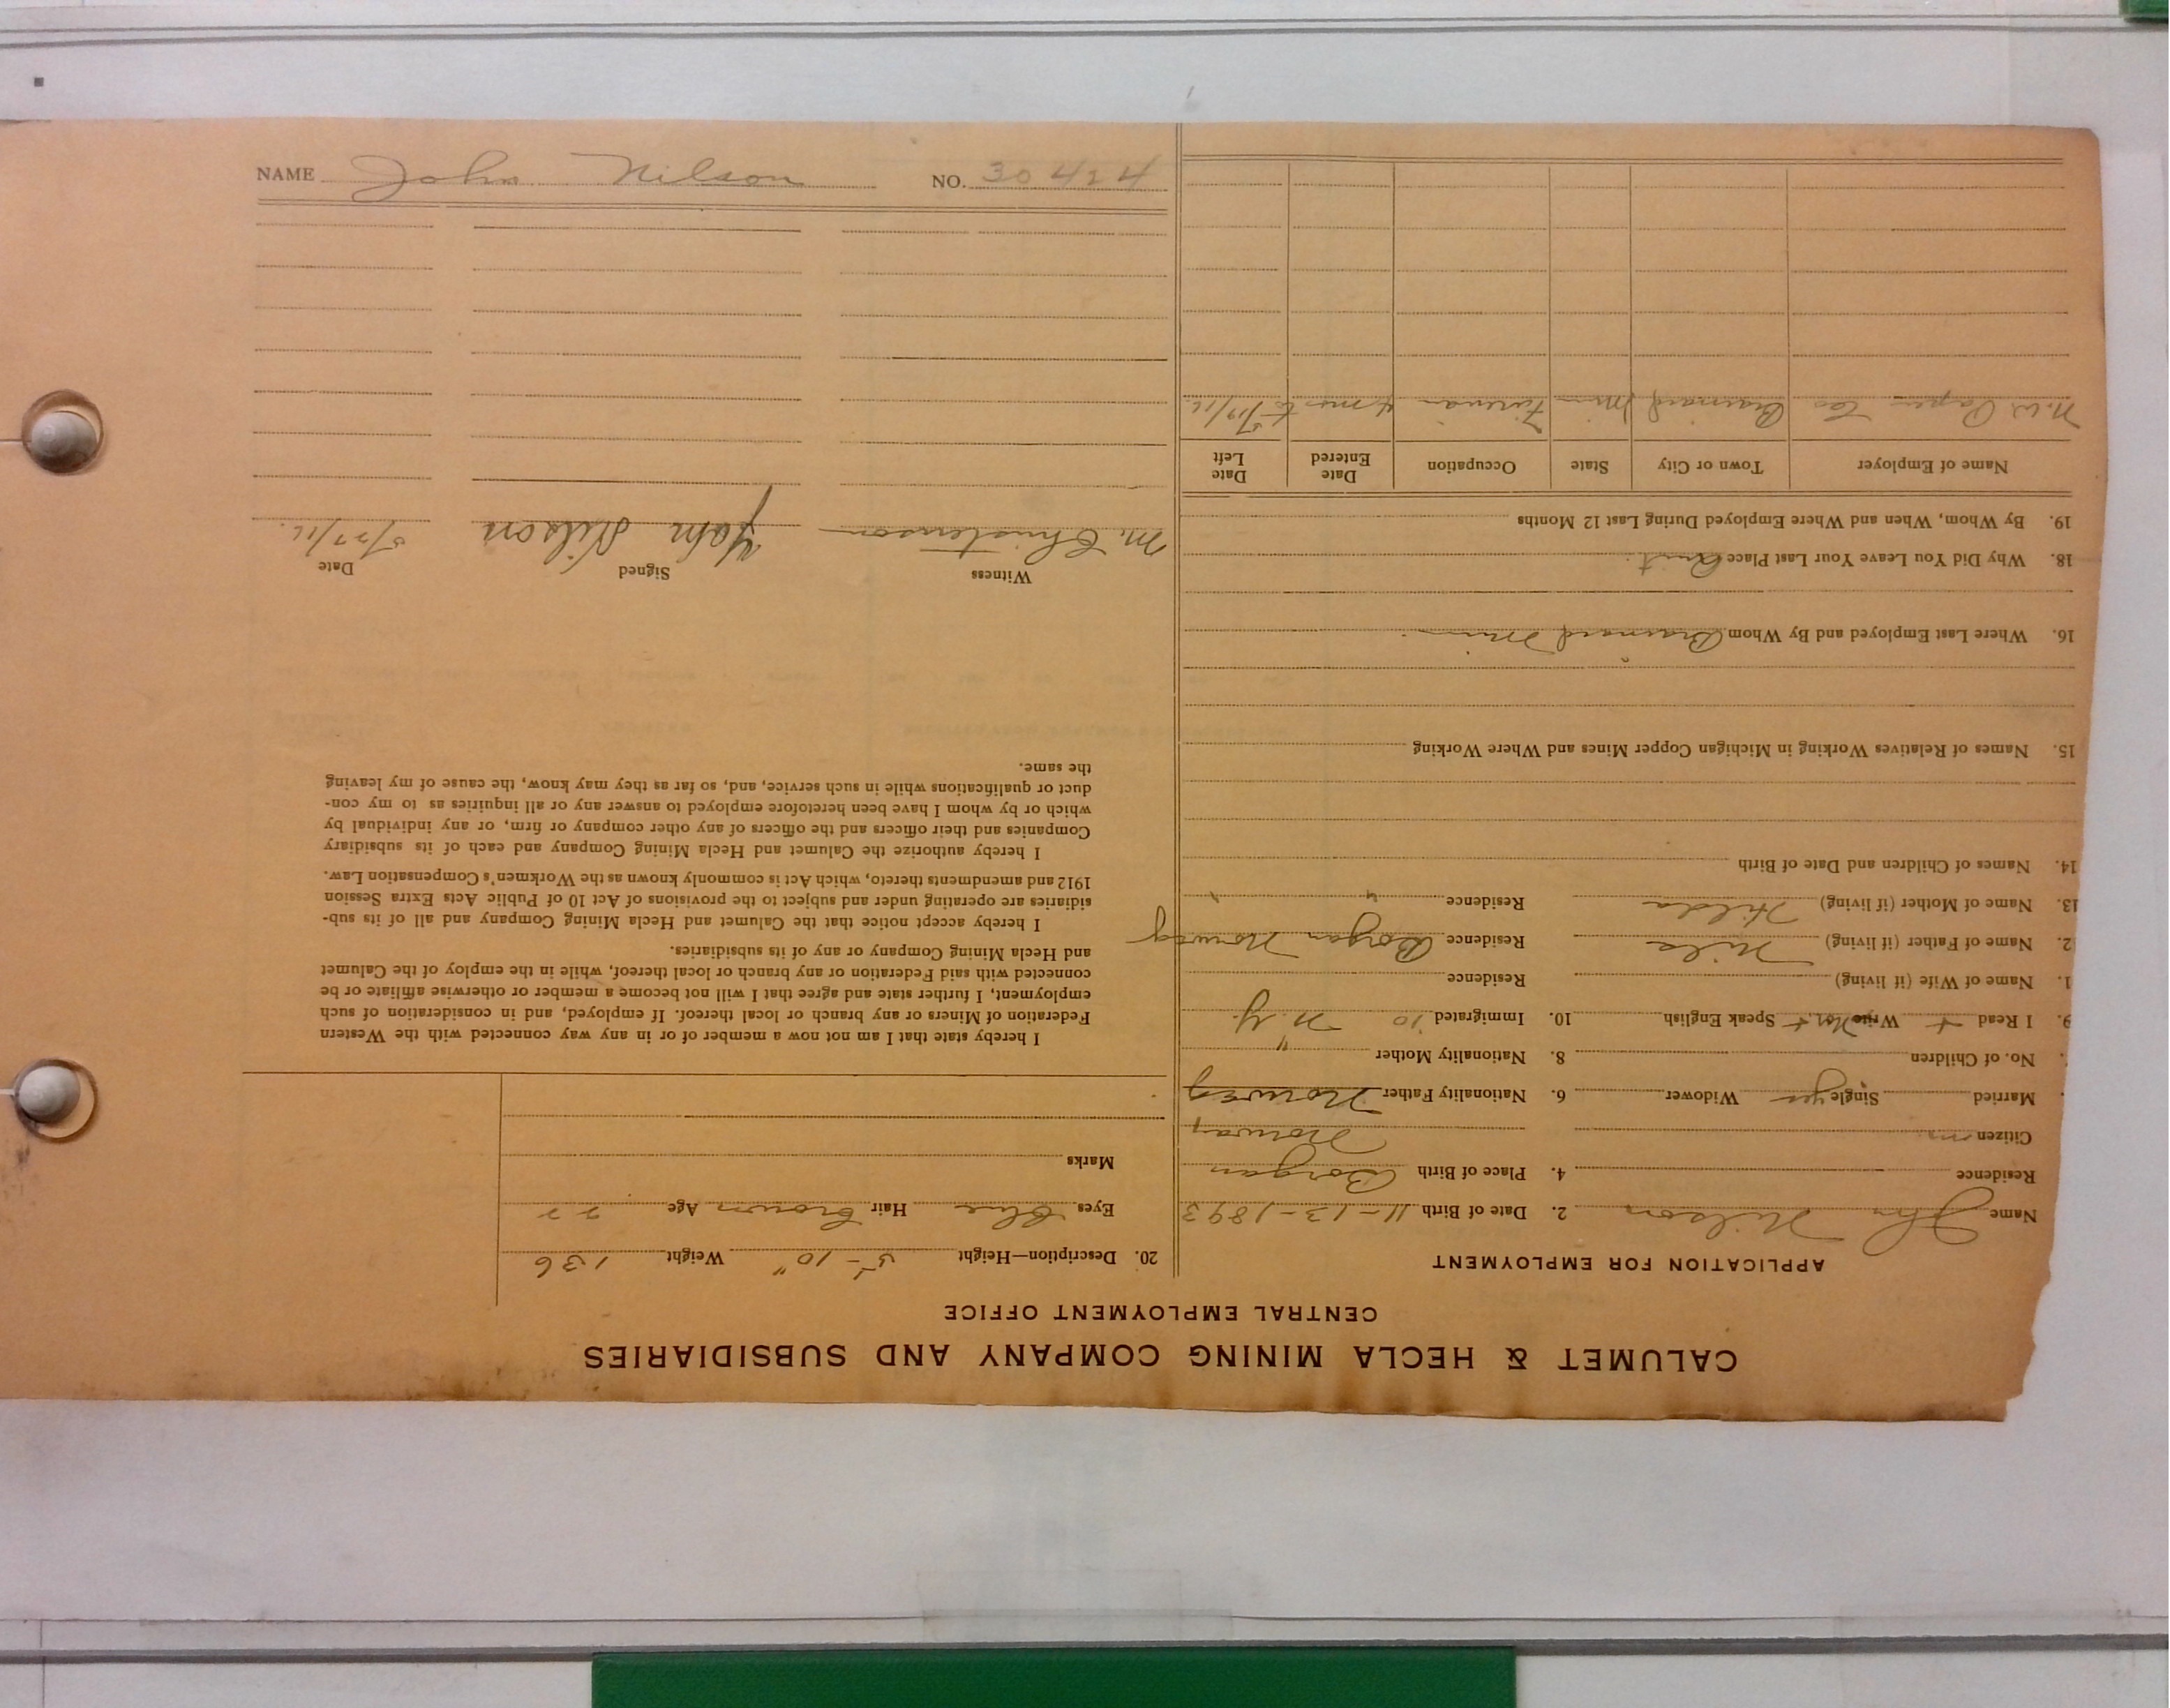 CALUMET & HECLA MINING COMPANY AND SUBSIDIARIES
CENTRAL EMPLOYMENT OFFICE
APPLICATION FOR EMPLOYMENT
Name John Nilson 2. Date of Birth 11-13-1893
Residence 4. Place of Birth Borgan
Citizen no Norway
Married Single yes Widower 6. Nationality Father Norway
No. of Children 8. Nationality Mother "
9. I Read + Write Nor. + Speak English 10. Immigrated '10 N.Y.
1. Name of Wife (if living) Residence
2. Name of Father (if living) Nils Residence Borgan Norway
13. Name of Mother (if living) Hilda Residence "
14. Names of Children and Date of Birth
15. Names of Relatives Working in Michigan Copper Mines and Where Working
16. Where Last Employed and By Whom Brainard Minn
18. Why Did You Leave Your Last Place Quit
19. By Whom, When and Where Employed During Last 12 Months
Name of Employer Town or City State Occupation Date Entered Date Left
N.W. Paper Co Brainard Minn Fireman 4 mos to 5/17/16.
20. Description—Height 5'-10" Weight 136
Eyes Blue Hair Brown Age 22
Marks
I hereby state that I am not now a member of or in any way connected with the Western
Federation of Miners or any branch or local thereof. If employed, and in consideration of such
employment, I further state and agree that I will not become a member or otherwise affiliate or be
connected with said Federation or any branch or local thereof, while in the employ of the Calumet
and Hecla Mining Company or any of its subsidiaries.
I hereby accept notice that the Calumet and Hecla Mining Company and all of its sub-
sidiaries are operating under and subject to the provisions of Act 10 of Public Acts Extra Session
1912 and amendments thereto, which Act is commonly known as the Workmen's Compensation Law.
I hereby authorize the Calumet and Hecla Mining Company and each of its subsidiary
Companies and their officers and the officers of any other company or firm, or any individual by
which or by whom I have been heretofore employed to answer any or all inquiries as to my con-
duct or qualifications while in such service, and, so far as they may know, the cause of my leaving
the same.
Witness Signed Date
M. Christenson John Nilson 5/27/16.
NAME John Nilson NO. 30424